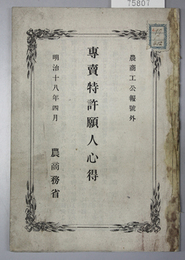 75807
農商工公報號外
專賣特許願人心得
明治十八年四月
農商務省